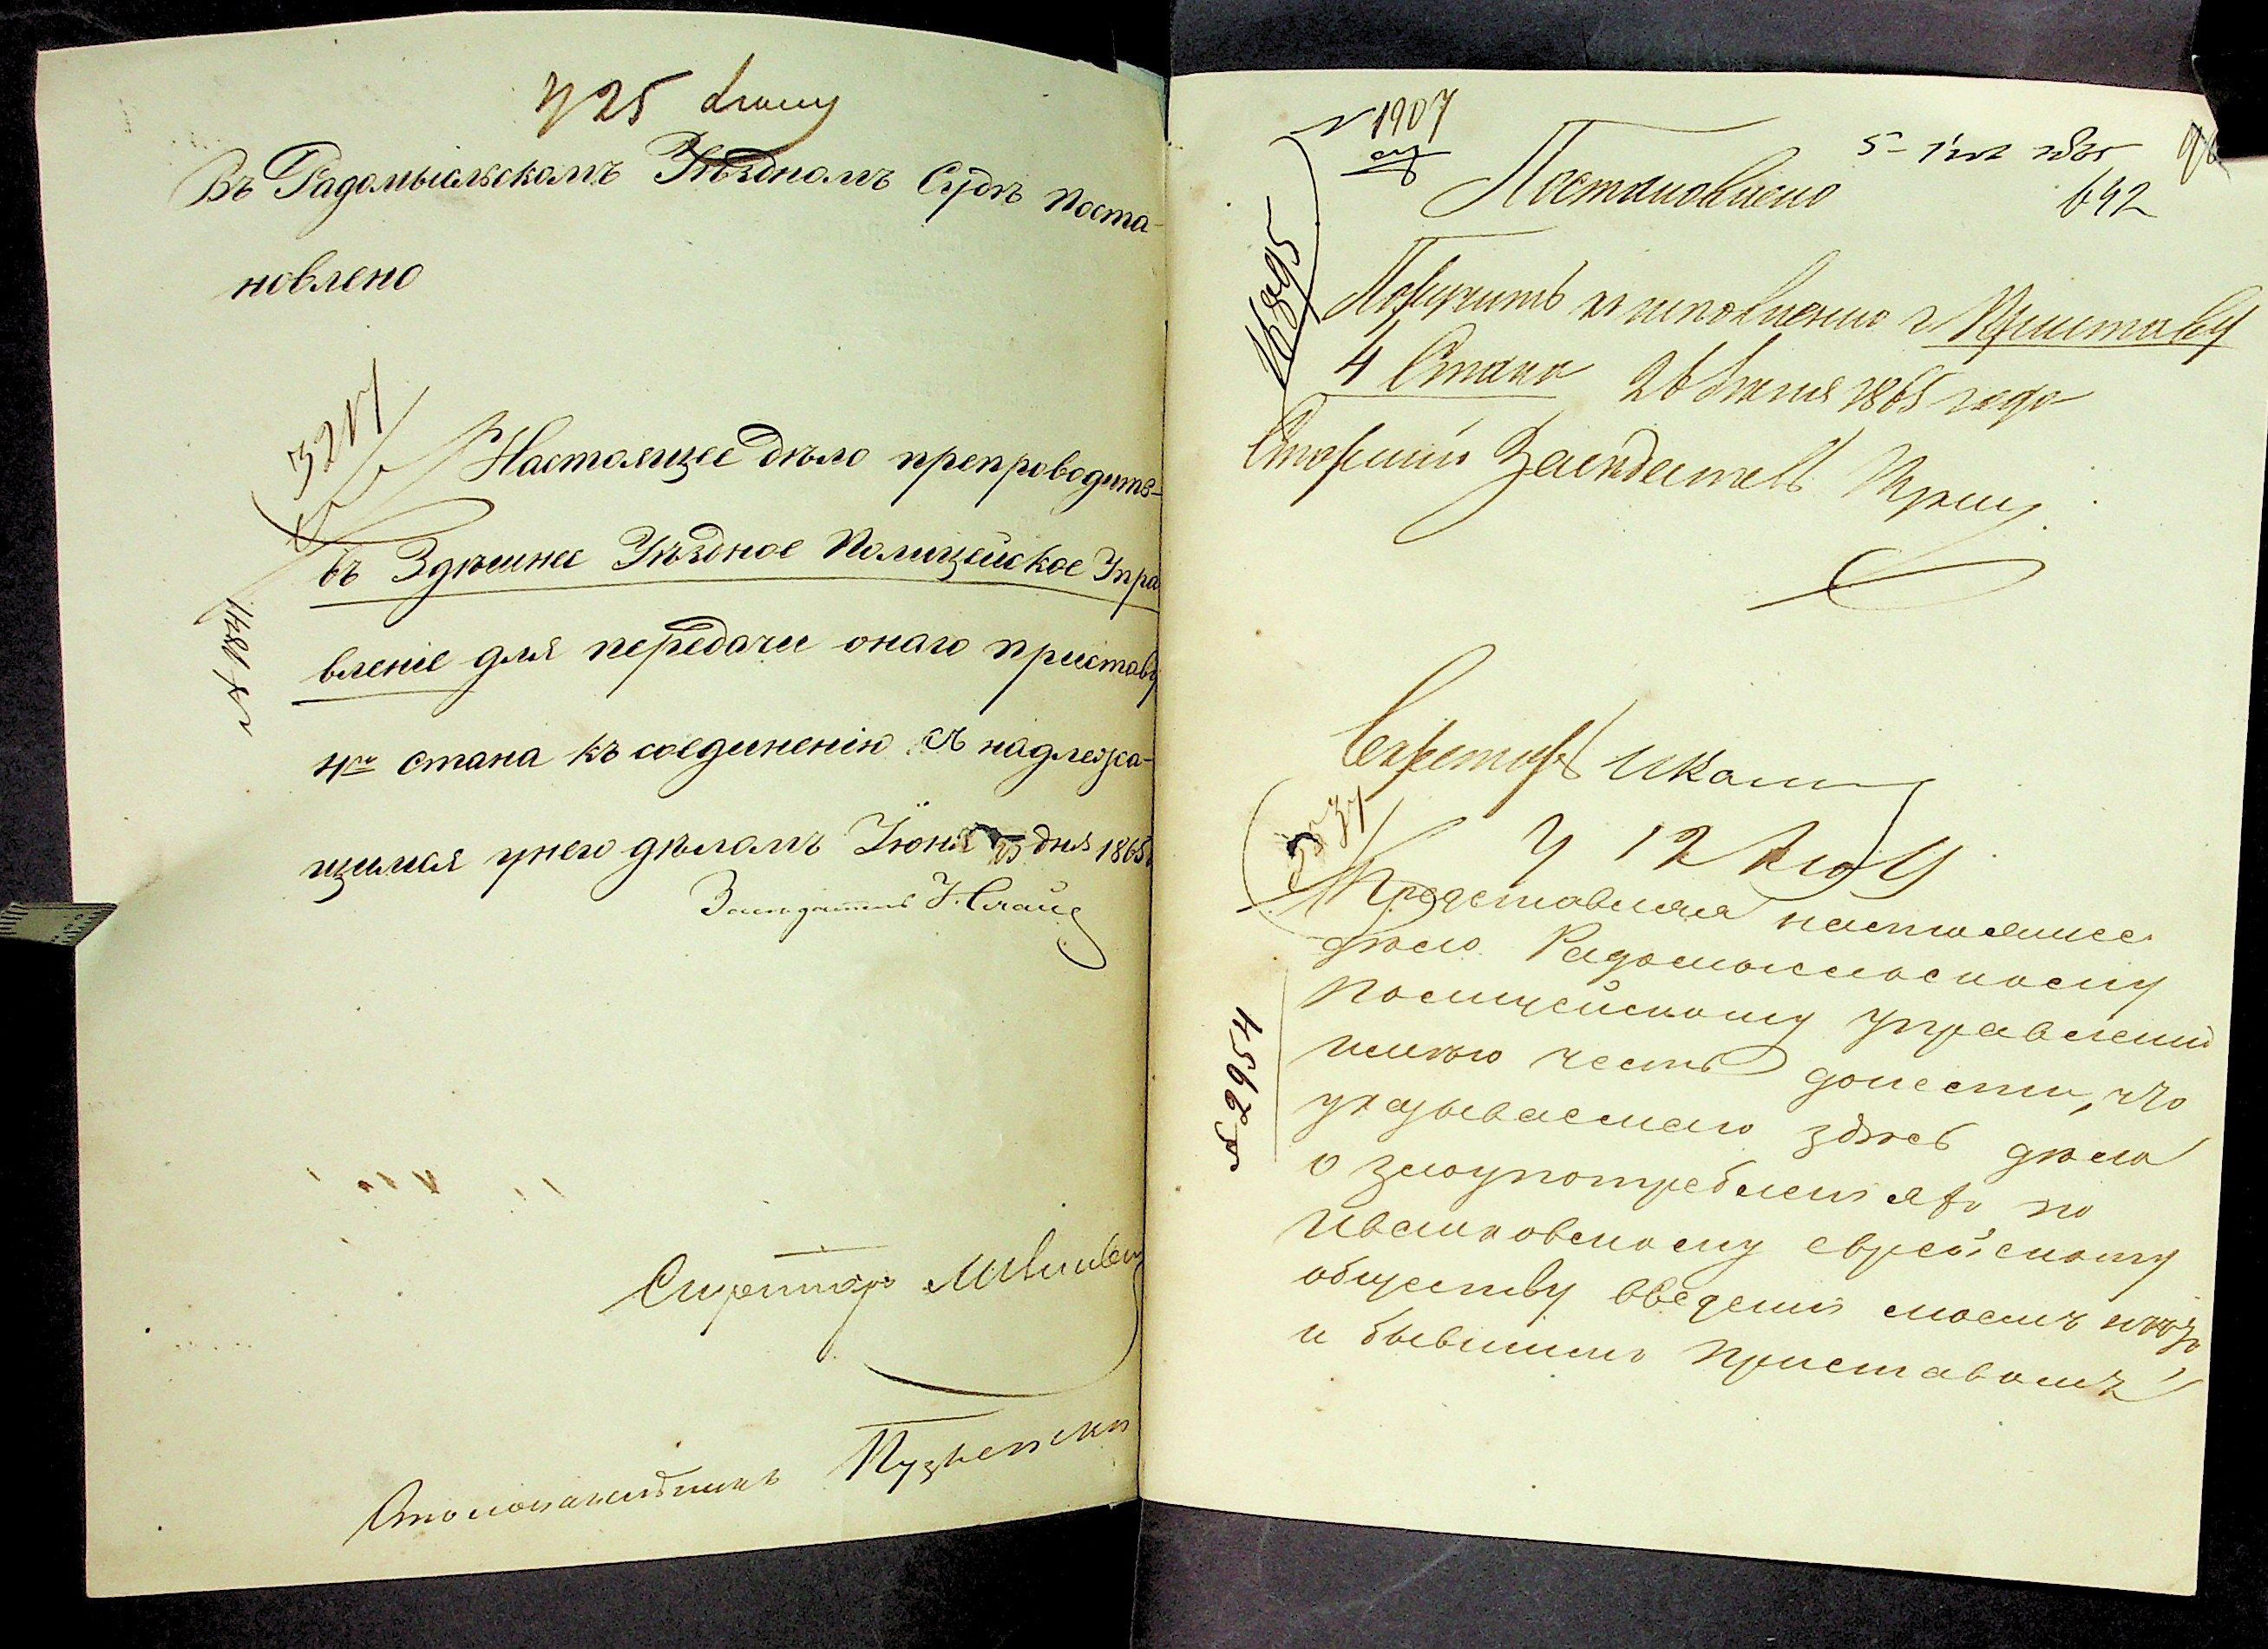 25 Июня
Въ Радомысльскомъ Уѣздномъ Судѣ поста-
новлено
3217
Настоящее дѣло препроводить
въ Здѣшнее Уѣздное Полицейское Упра
вленіе для передачи онаго приставу
4го стана къ соединенію съ надлежа-
щимъ у него дѣламъ Іюня 25 дня 1865
Засѣдатель
Секретарь
Столоначальникъ
№ 1907
5
692
Постановлено
16895
Поручить къ исполненію г Приставу
4 Стана 26 Іюня 1865 года
Старшій Засѣдатель
Секретарь
12
Представляя настоящее
дѣло Радомысльскому
Полицейскому управленію
имѣю честь донести, что
указываемаго здѣсь дѣла
о злоупотребленіяхъ по
Иванковскому еврейскому
обществу въ вѣденіи моемъ нѣтъ
и бывшимъ Приставомъ
№ 2954